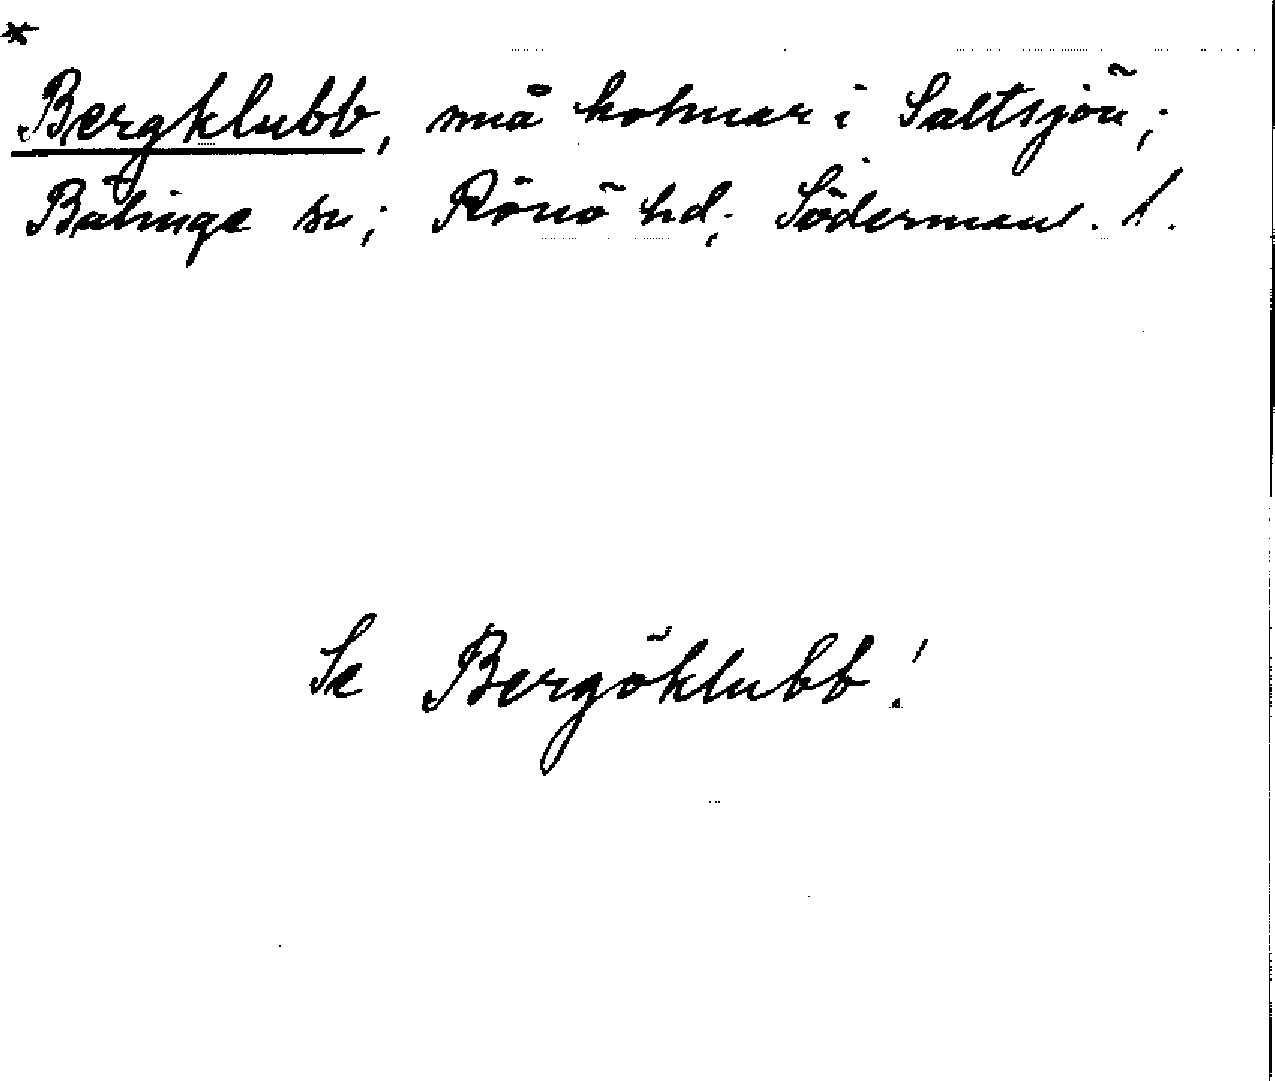 *
Bergklubb, små holmar i Saltsjön;
Bälinge sn; Rönö hd; Söderman. l.
Se Bergöklubb!